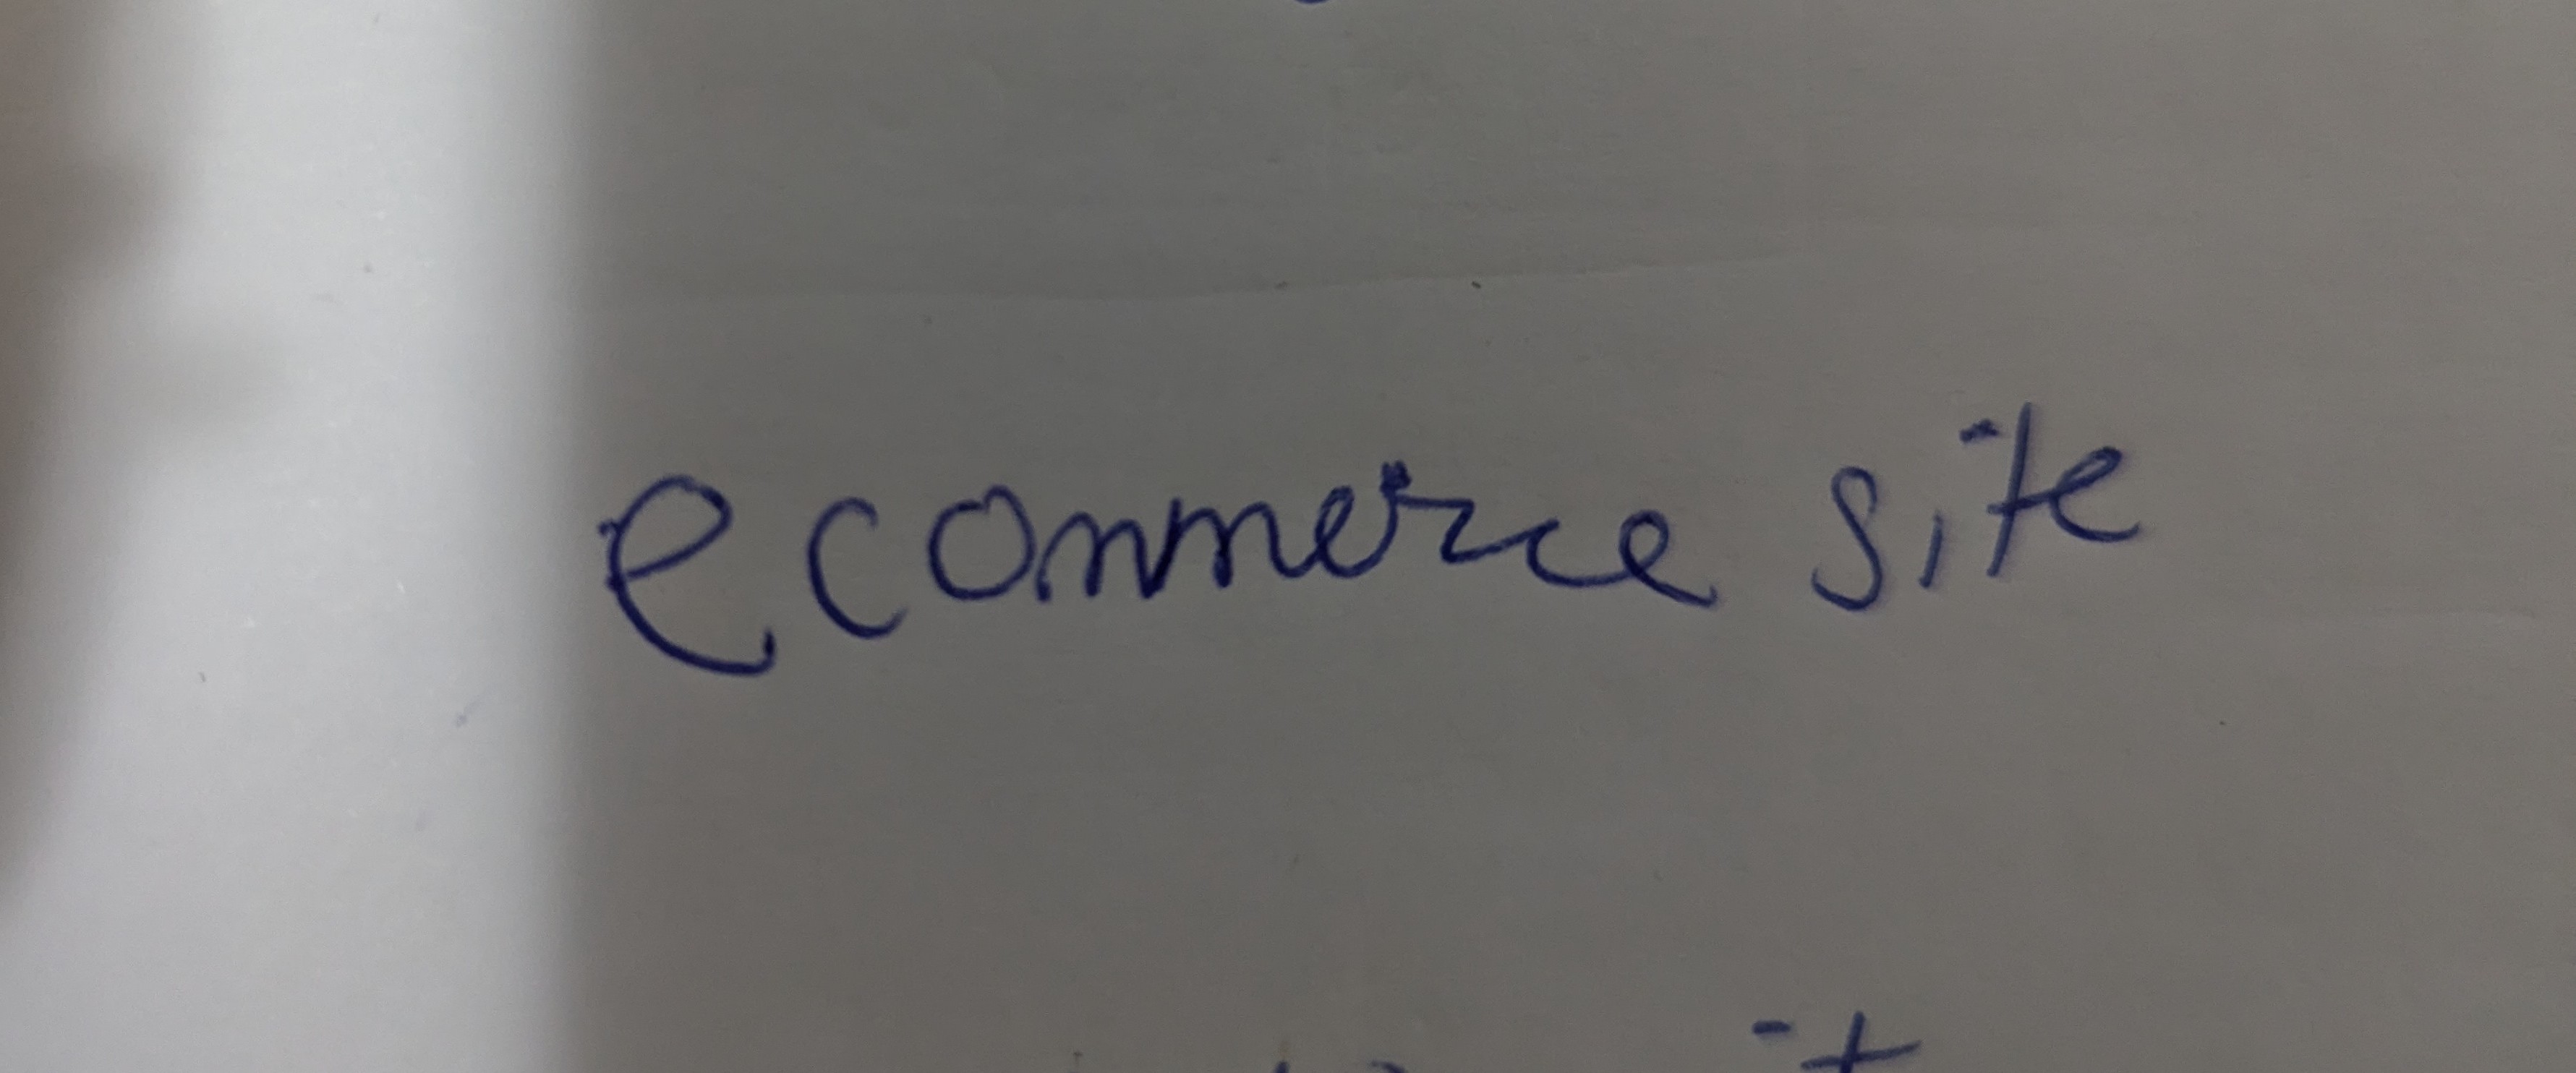 ecommerce site